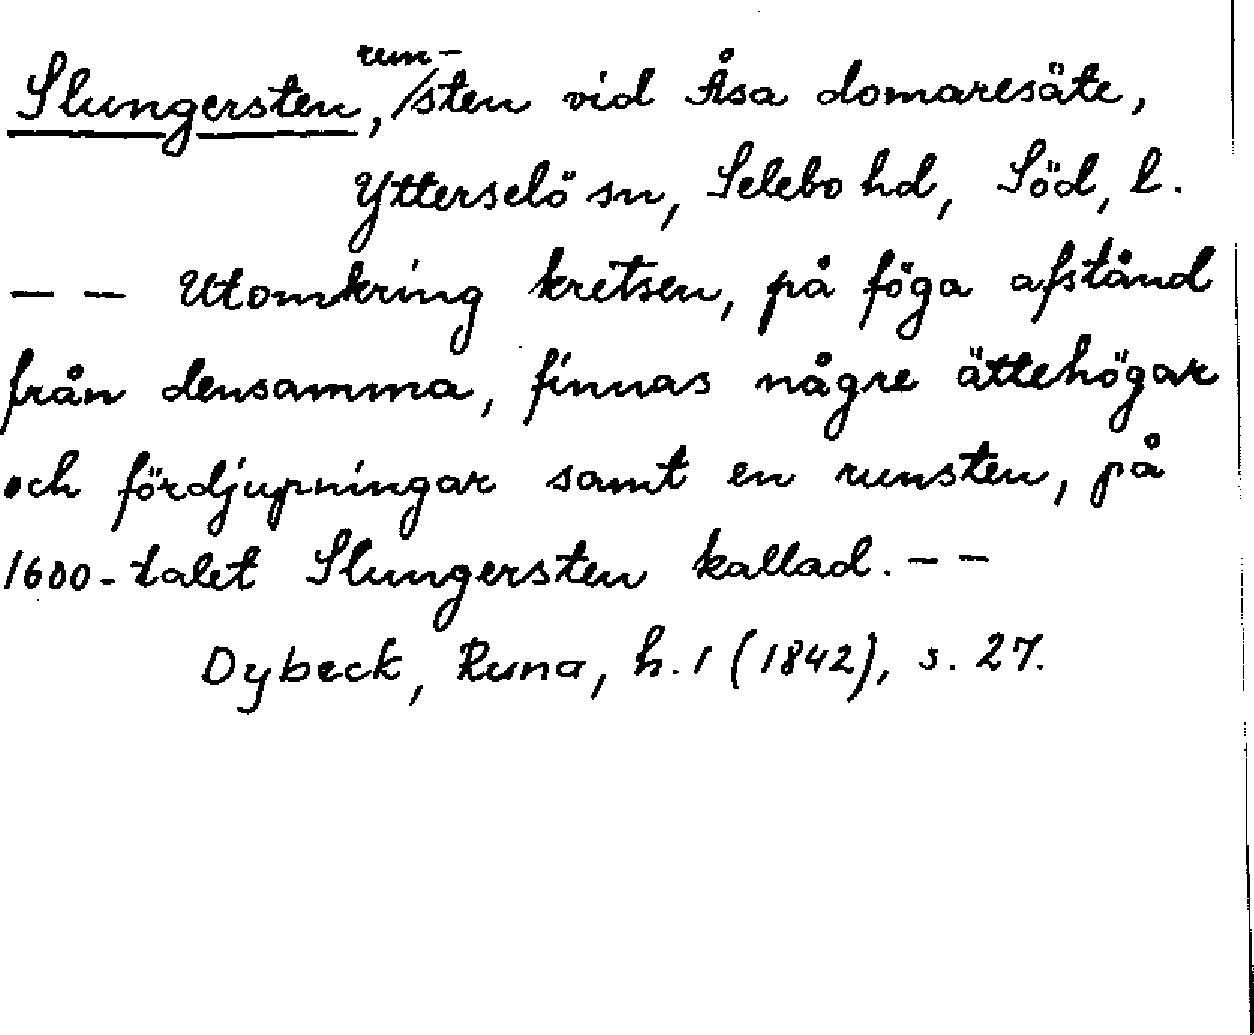 Slungersten, run-/sten vid Åsa domaresäte,
Ytterselö sn, Selebo hd, Söd, l.
— — Utomkring kretsen, på föga afstånd
från densamma, finnas någre ättehögar
och fördjupningar samt en runsten, på
1600-talet Slungersten kallad. — —
Dybeck, Runa, h. 1 (1842), s. 27.